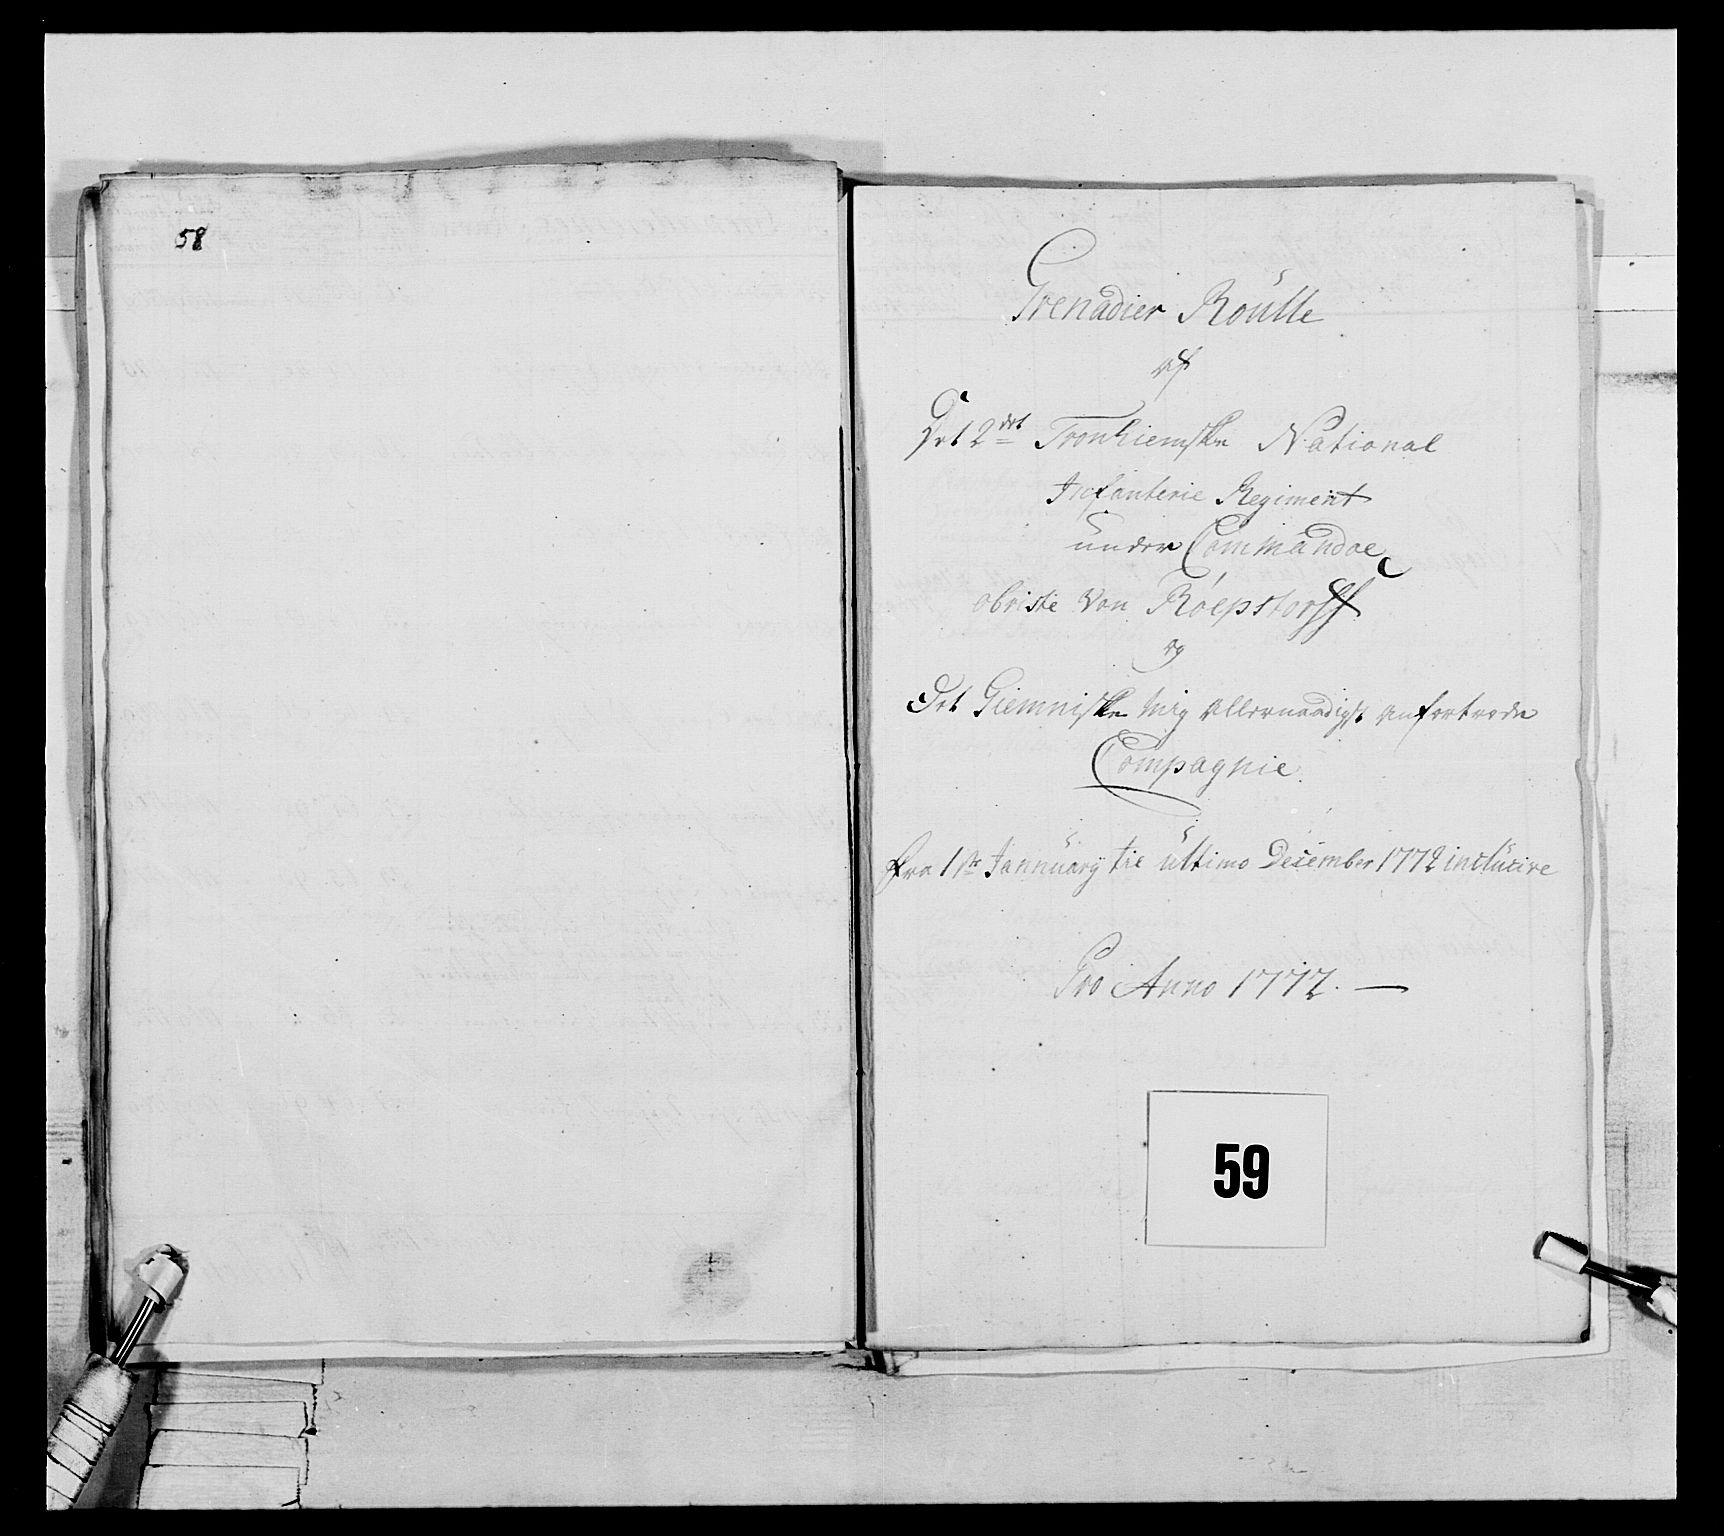 58
Grenadier Roulle
af
Det 2det Tronhiemske National
Infanterie Regiment
under Commandoe
obriste von Röepstorff
og
Det Giemniske mig allernaadigst anfortrode
Compagnie
fra 1ste Jannuarÿ til ultimo December 1772 inclucive
Pro Anno 1772. —
59